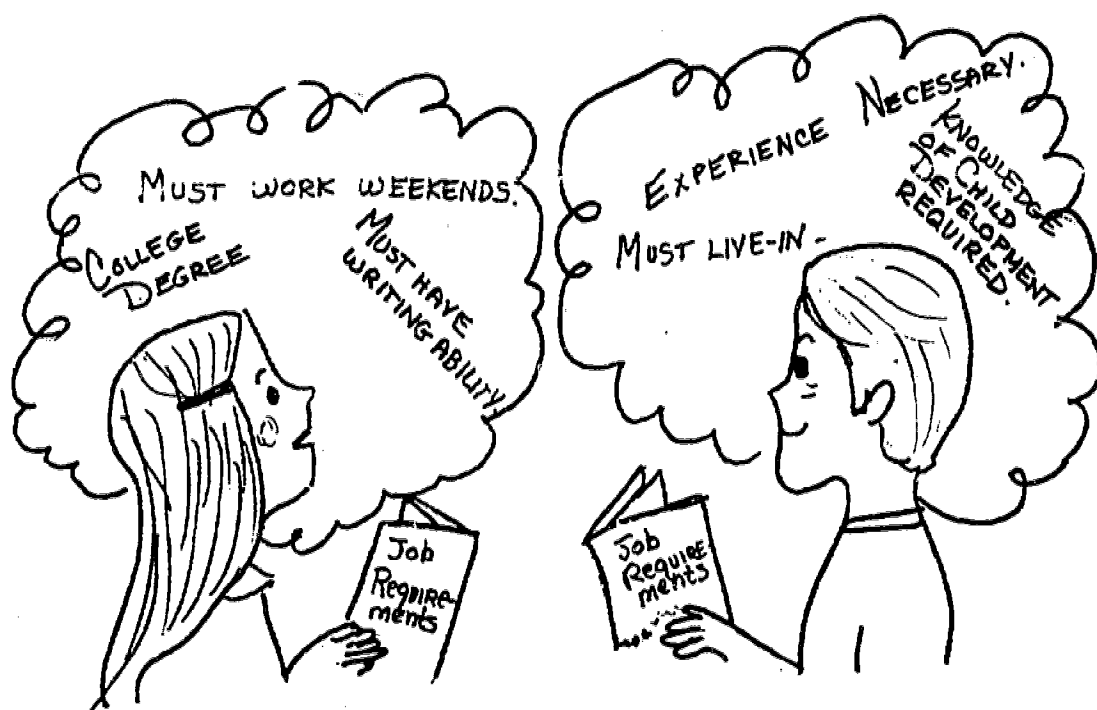 MUST WORK WEEKENDS.
COLLEGE
DEGREE
MUST HAVE
WRITING ABILITY.
Job
REQUIRE-
ments
EXPERIENCE NECESSARY.
KNOWLEDGE
OF CHILD
DEVELOPMENT
REQUIRED.
MUST LIVE-IN-
Job
REQUIRE-
ments